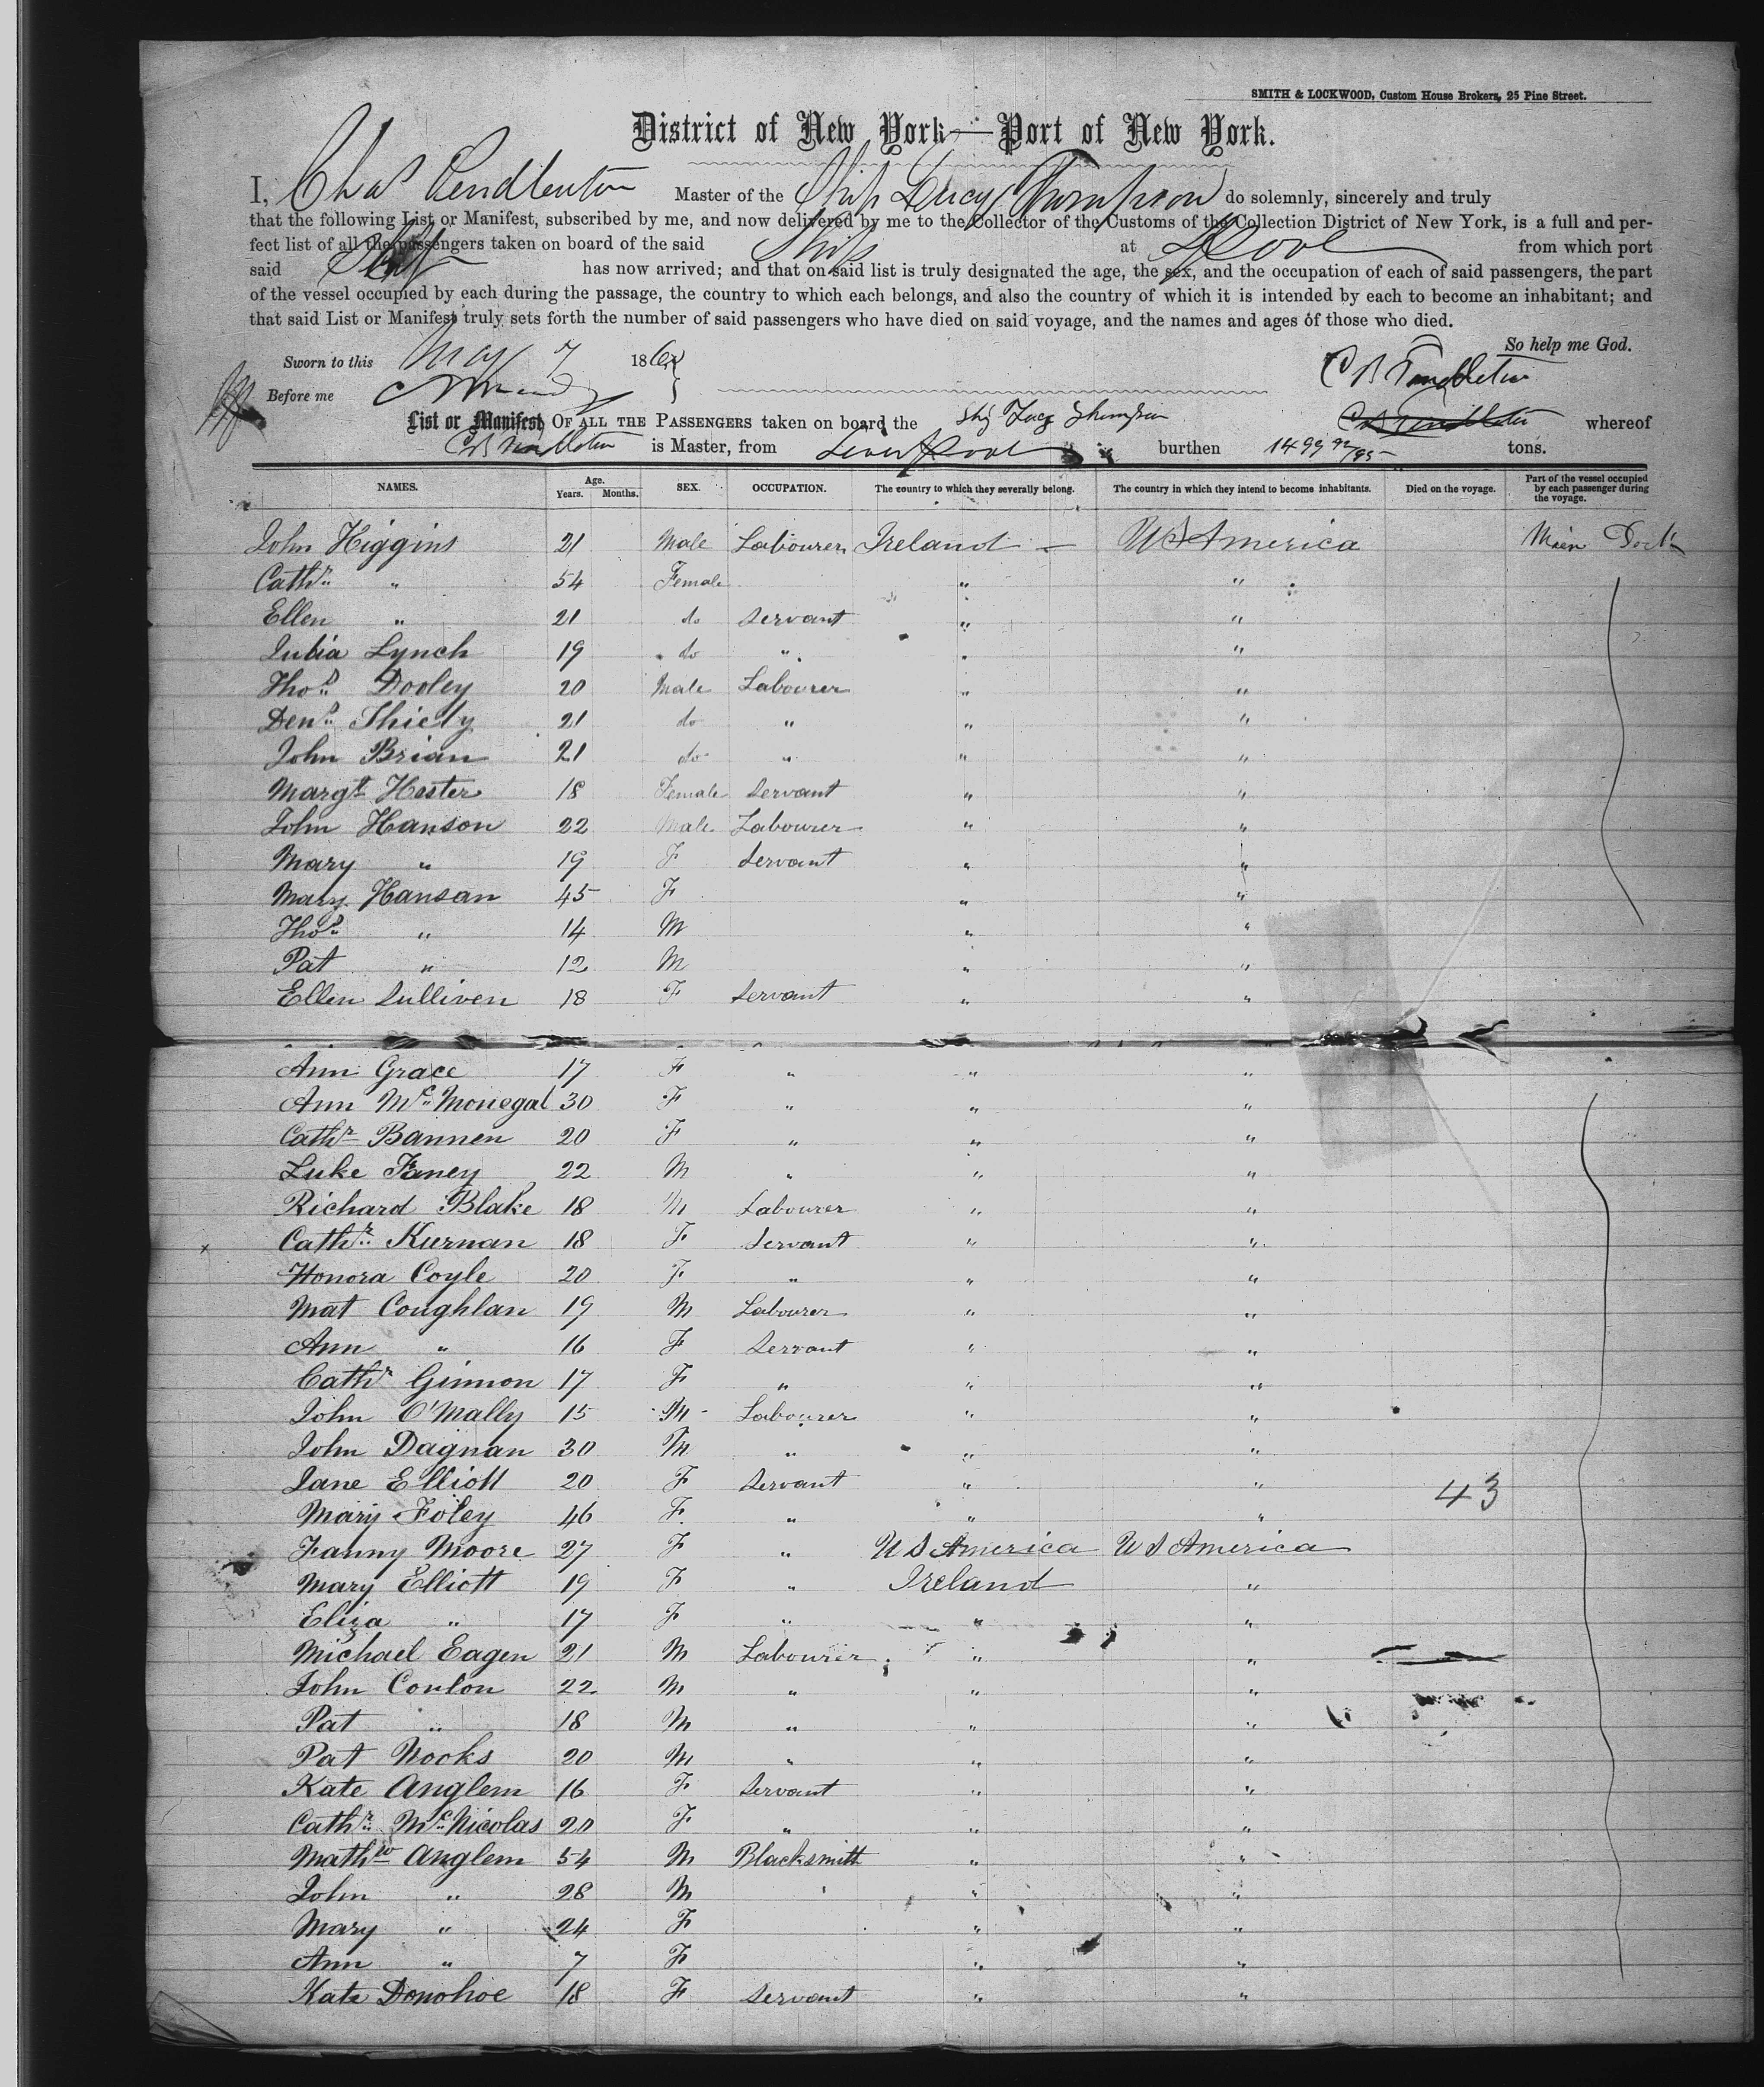 SMITH & LOCKWOOD, Custom House Brokers, 25 Pine Street.
District of New York—Port of New York.
I, Chas Pendleton Master of the Ship Lucy Thompson do solemnly, sincerely and truly
that the following List or Manifest, subscribed by me, and now delivered by me to the Collector of the Customs of the Collection District of New York, is a full and per-
fect list of all the passengers taken on board of the said Ship at LPool from which port
said Ship has now arrived; and that on said list is truly designated the age, the sex, and the occupation of each of said passengers, the part
of the vessel occupied by each during the passage, the country to which each belongs, and also the country of which it is intended by each to become an inhabitant; and
that said List or Manifest truly sets forth the number of said passengers who have died on said voyage, and the names and ages of those who died.
So help me God.
Sworn to this May 7 186 C B Pendleton
Before me
List or Manifest OF ALL THE PASSENGERS taken on board the Ship Lucy Thompson C B Pendleton whereof
C B Pendleton is Master, from Liverpool burthen 1499 92/95 tons.
NAMES. Age. Years. Months. SEX. OCCUPATION. The country to which they severally belong. The country in which they intend to become inhabitants. Died on the voyage. Part of the vessel occupied by each passenger during the voyage.
John Higgins 21 Male Labourer Ireland US America Main Deck
Cathr " 54 Female " "
Ellen " 21 do Servant " "
Julia Lynch 19 do " " "
Thos Dooley 20 Male Labourer " "
Dens Shiely 21 do " " "
John Brian 21 do " " "
Margt Hester 18 Female Servant " "
John Hanson 22 Male Labourer " "
Mary " 19 F Servant " "
Mary Hansan 45 F " "
Thos " 14 M " "
Pat " 12 M " "
Ellen Sulliven 18 F Servant " "
Ann Grace 17 F " " "
Ann Mc Monegal 30 F " " "
Cathr Bannen 20 F " " "
Luke Faney 22 M " " "
Richard Blake 18 M Labourer " "
Cathr Kurnan 18 F Servant " "
Honora Coyle 20 F " " "
Mat Coughlan 19 M Labourer " "
Ann " 16 F Servant " "
Cathr Ginnon 17 F " " "
John O'Mally 15 M Labourer " "
John Dagnan 30 M " " "
Jane Elliott 20 F Servant " " 43
Mary Foley 46 F " " "
Fanny Moore 27 F " U S America U S America
Mary Elliott 19 F " Ireland "
Eliza " 17 F " " "
Michael Eagen 21 M Labourer " "
John Conlon 22 M " " "
Pat " 18 M " " "
Pat Nooks 20 M " " "
Kate Anglem 16 F Servant " "
Cathr McNicolas 20 F " " "
Mathw Anglem 54 M Blacksmith " "
John " 28 M " "
Mary " 24 F " "
Ann " 7 F " "
Kate Donohoe 18 F Servant " "